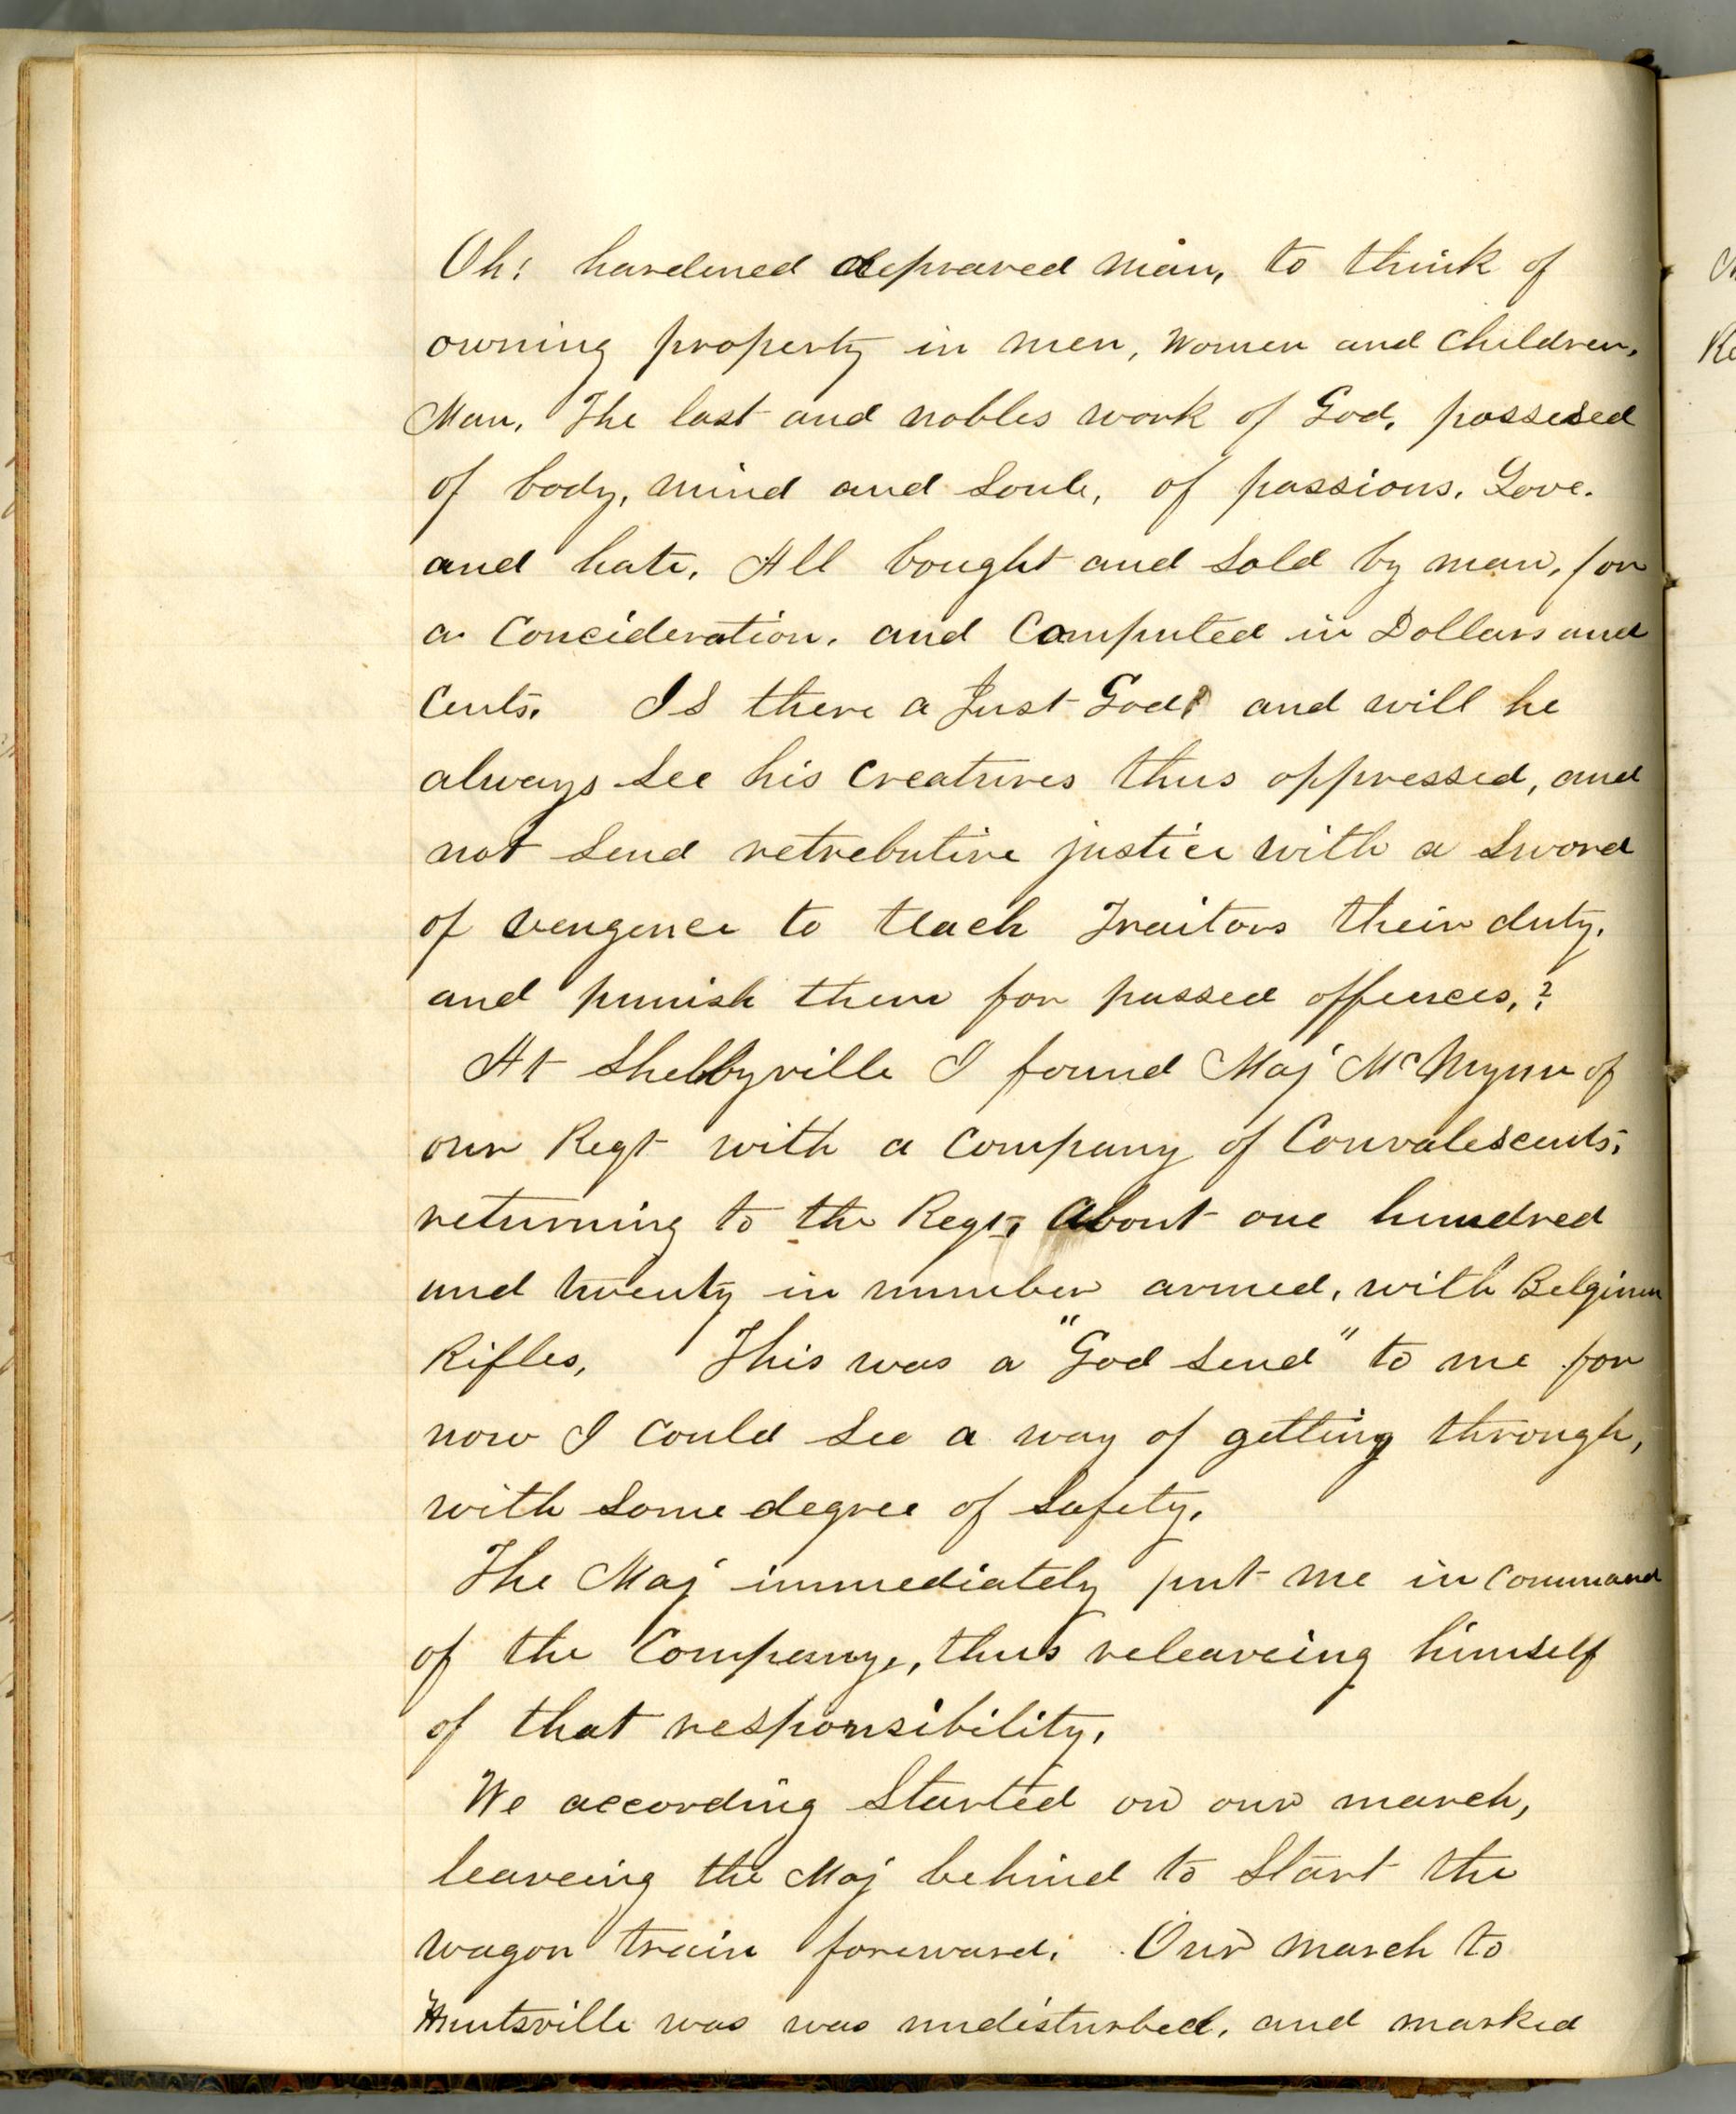 Oh! hardened depraved man, to think of
owning property in men, Women and children,
Man, The last and nobles work of God, possessed
of body, mind and soule, of passions. Love.
and hate. All bought and sold by man, for
a Concideration. and Computed in Dollars and
Cents. Is there a Just God? and will he
always see his Creatures thus oppressed, and
not send retrebutive justice with a sword
of vengence to teach Traitors their duty.
and punish them for passed offences,?
At Shelbyville I found Maj McMynn of
our Regt with a Company of Convalescents;
returning to the Regt, about one hundred
and twenty in number armed, with Belgium
Rifles, This was a "God send" to me for
now I could see a way of getting through,
with some degree of safety.
The Maj immediately put me in command
of the Company, thus releaveing himself
of that responsibility.
We according started on our march,
leaveing the Maj behind to start the
wagon train foreward. Our march to
Huntsville was was undisturbed, and marked